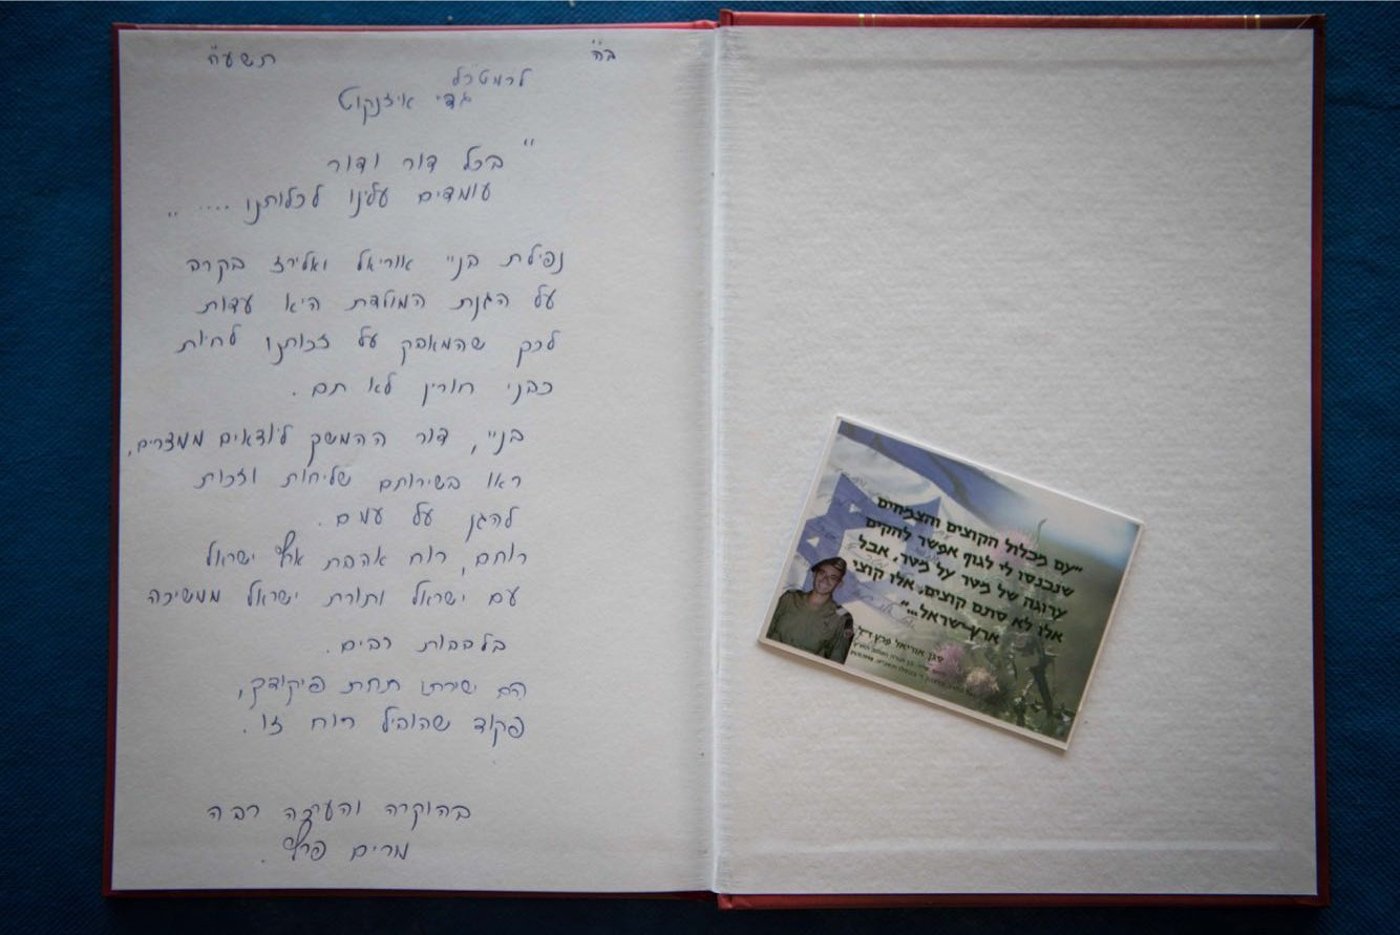 ב"ה
תשע"ה
לרמטכ"ל
גדי איזנקוט
"בכל דור ודור
עומדים עלינו לכלותנו .... "
נפילת בניי אוריאל ואלירז בקרב
על הגנת המולדת היא עדות
לכך שהמאבק על זכותנו לחיות
כבני חורין לא תם.
בניי, דור ההמשך ליוצאים ממצרים,
ראו בשירותם שליחות וזכות
להגן על עמם.
רוחם, רוח אהבת ארץ ישראל
עם ישראל ותורת ישראל ממשיכה
בלבבות רבים.
הם שירתו תחת פיקודך,
פקוד שהוביל רוח זו.
בהוקרה והערכה רבה
מרים פרץ.
"עם מכלול הקוצים והצבחים
שנכנסו לי לגוף אפשר להקים
ערוגה של מטר על מטר, אבל
אלו לא סתם קוצים, אלו קוצי
ארץ-ישראל..."
סגן אוריאל פרץ הי"ד